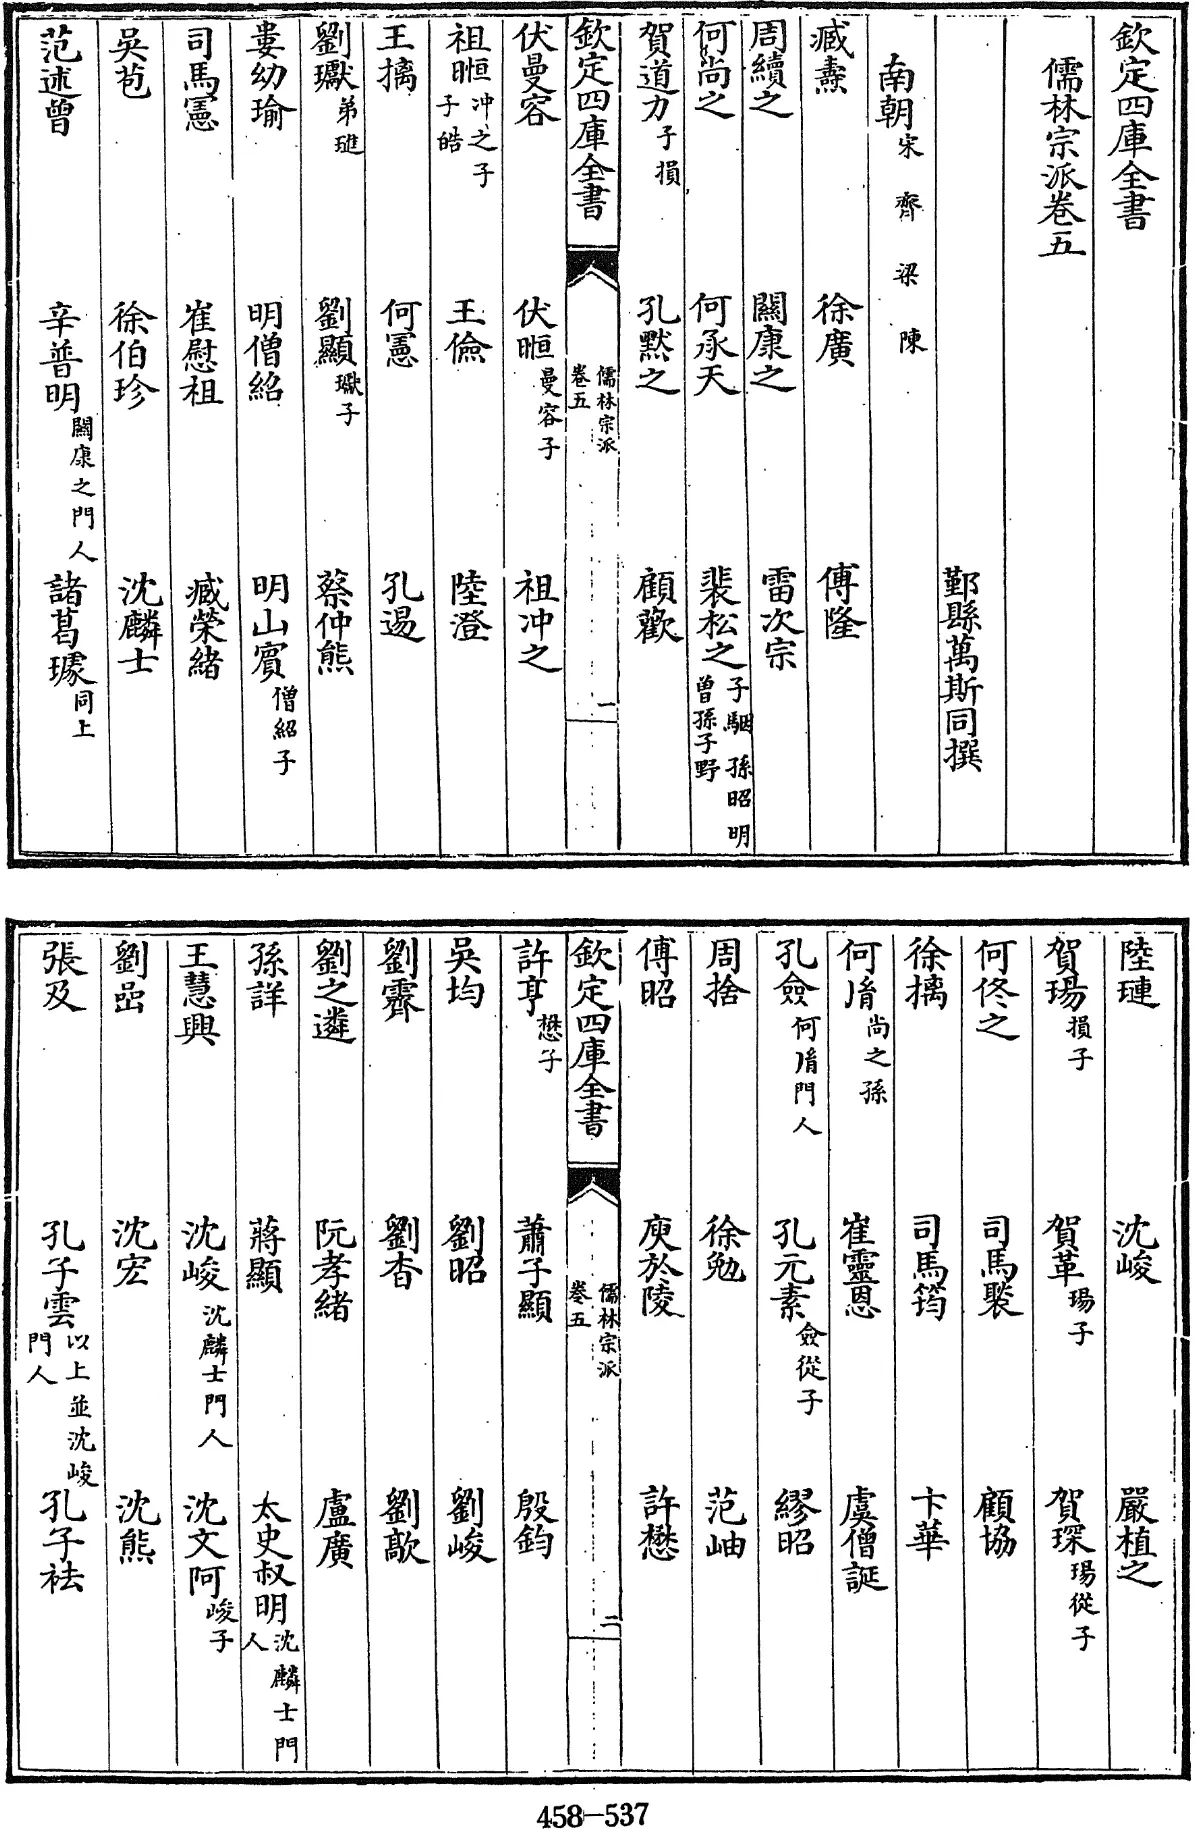 欽定四庫全書
儒林宗派卷五
鄞縣萬斯同撰
南朝宋 齊 梁 陳
臧燾 徐廣 傅隆
周續之 關康之 雷次宗
何尚之 何承天 裴松之子駰 孫昭明 曾孫子野
賀道力子損 孔默之 顧歡
欽定四庫全書 儒林宗派 卷五 一
伏曼容 伏暅曼容子 祖冲之
祖暅冲之子 子皓 王儉 陸澄
王摛 何憲 孔逷
劉瓛弟璡 劉顯瓛子 蔡仲熊
婁幼瑜 明僧紹 明山賓僧紹子
司馬憲 崔慰祖 臧榮緒
吳苞 徐伯珍 沈麟士
范述曾 辛普明關康之門人 諸葛璩同上
陸璉 沈峻 嚴植之
賀瑒損子 賀革瑒子 賀琛瑒從子
何佟之 司馬褧 顧協
徐摛 司馬筠 卞華
何胤尚之孫 崔靈恩 虞僧誕
孔僉何胤門人 孔元素僉從子 繆昭
周捨 徐勉 范岫
傅昭 庾於陵 許懋
欽定四庫全書 儒林宗派 卷五 二
許亨懋子 蕭子顯 殷鈞
吳均 劉昭 劉峻
劉霽 劉杳 劉歊
劉之遴 阮孝緒 盧廣
孫詳 蔣顯 太史叔明沈麟士門人
王慧興 沈峻沈麟士門人 沈文阿峻子
劉嵒 沈宏 沈熊
張及 孔子雲以上並沈峻門人 孔子袪
458—537